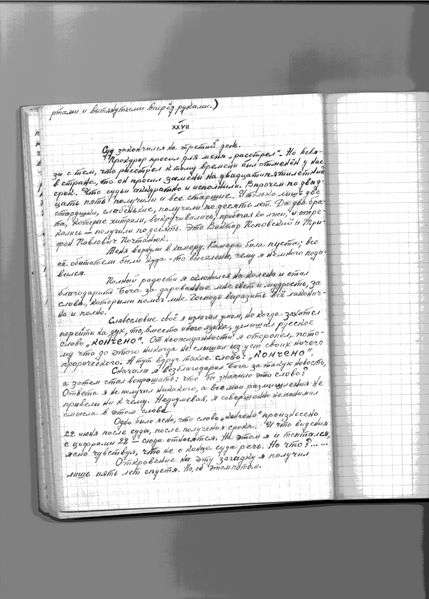 ртами и вытянутыми вперёд руками.)
XXVII
Суд закончился на третий день.
Прокурор просил для меня „расстрел". Но в свя-
зи с тем, что расстрел к тому времени был отменён у нас
в стране, то он просил заменить на двадцатипятилетний
срок. Что судьи аккуратно и исполнили. Впрочем по двад
цать пять получили и все старшие. И только лишь две
старушки, слабенькие, получили по десять лет. Да два бра-
та, которые юлили, выкручивались, прибегая ко лжи, и отре-
кались — получили по десять. Это Виктор Поповский и Три-
фон Павлович
Меня вернули в камеру. Камера была пустая; все
её обитатели были куда-то выселены, чему я немного поди-
вился.
Полный радости я склонился на колени и стал
благодарить Бога за дарованные мне свет и мудрость, за
слова, которыми помог мне Господь выразить всё лаконич-
но и полно.
Славословие своё я излагал умом, но когда захотел
перейти на дух, то, вместо иного языка, услышал русское
слово „кончено". От неожиданности я оторопел, пото-
му что до этого никогда не слышал из уст своих ничего
пророческого. А тут вдруг такое слово: „кончено",
Сначала я возблагодарил Бога за такую новость,
а затем стал вопрошать: что бы значило это слово?
Ответа я не получил никакого, а все мои размышления не
привели ни к чему. Недоумевая, я совершенно не понимал
смысла в этом слове.
Одно было ясно, что слово „кончено" произнесено
22 июня после суда, после получения срока. И что видения
с цифрами 22 — сюда относятся. На этом я и
ясно чувствуя, что не о конце суда речь. Но что?......
Откровение на эту загадку я получил
лишь пять лет спустя. Но, об этом потом.